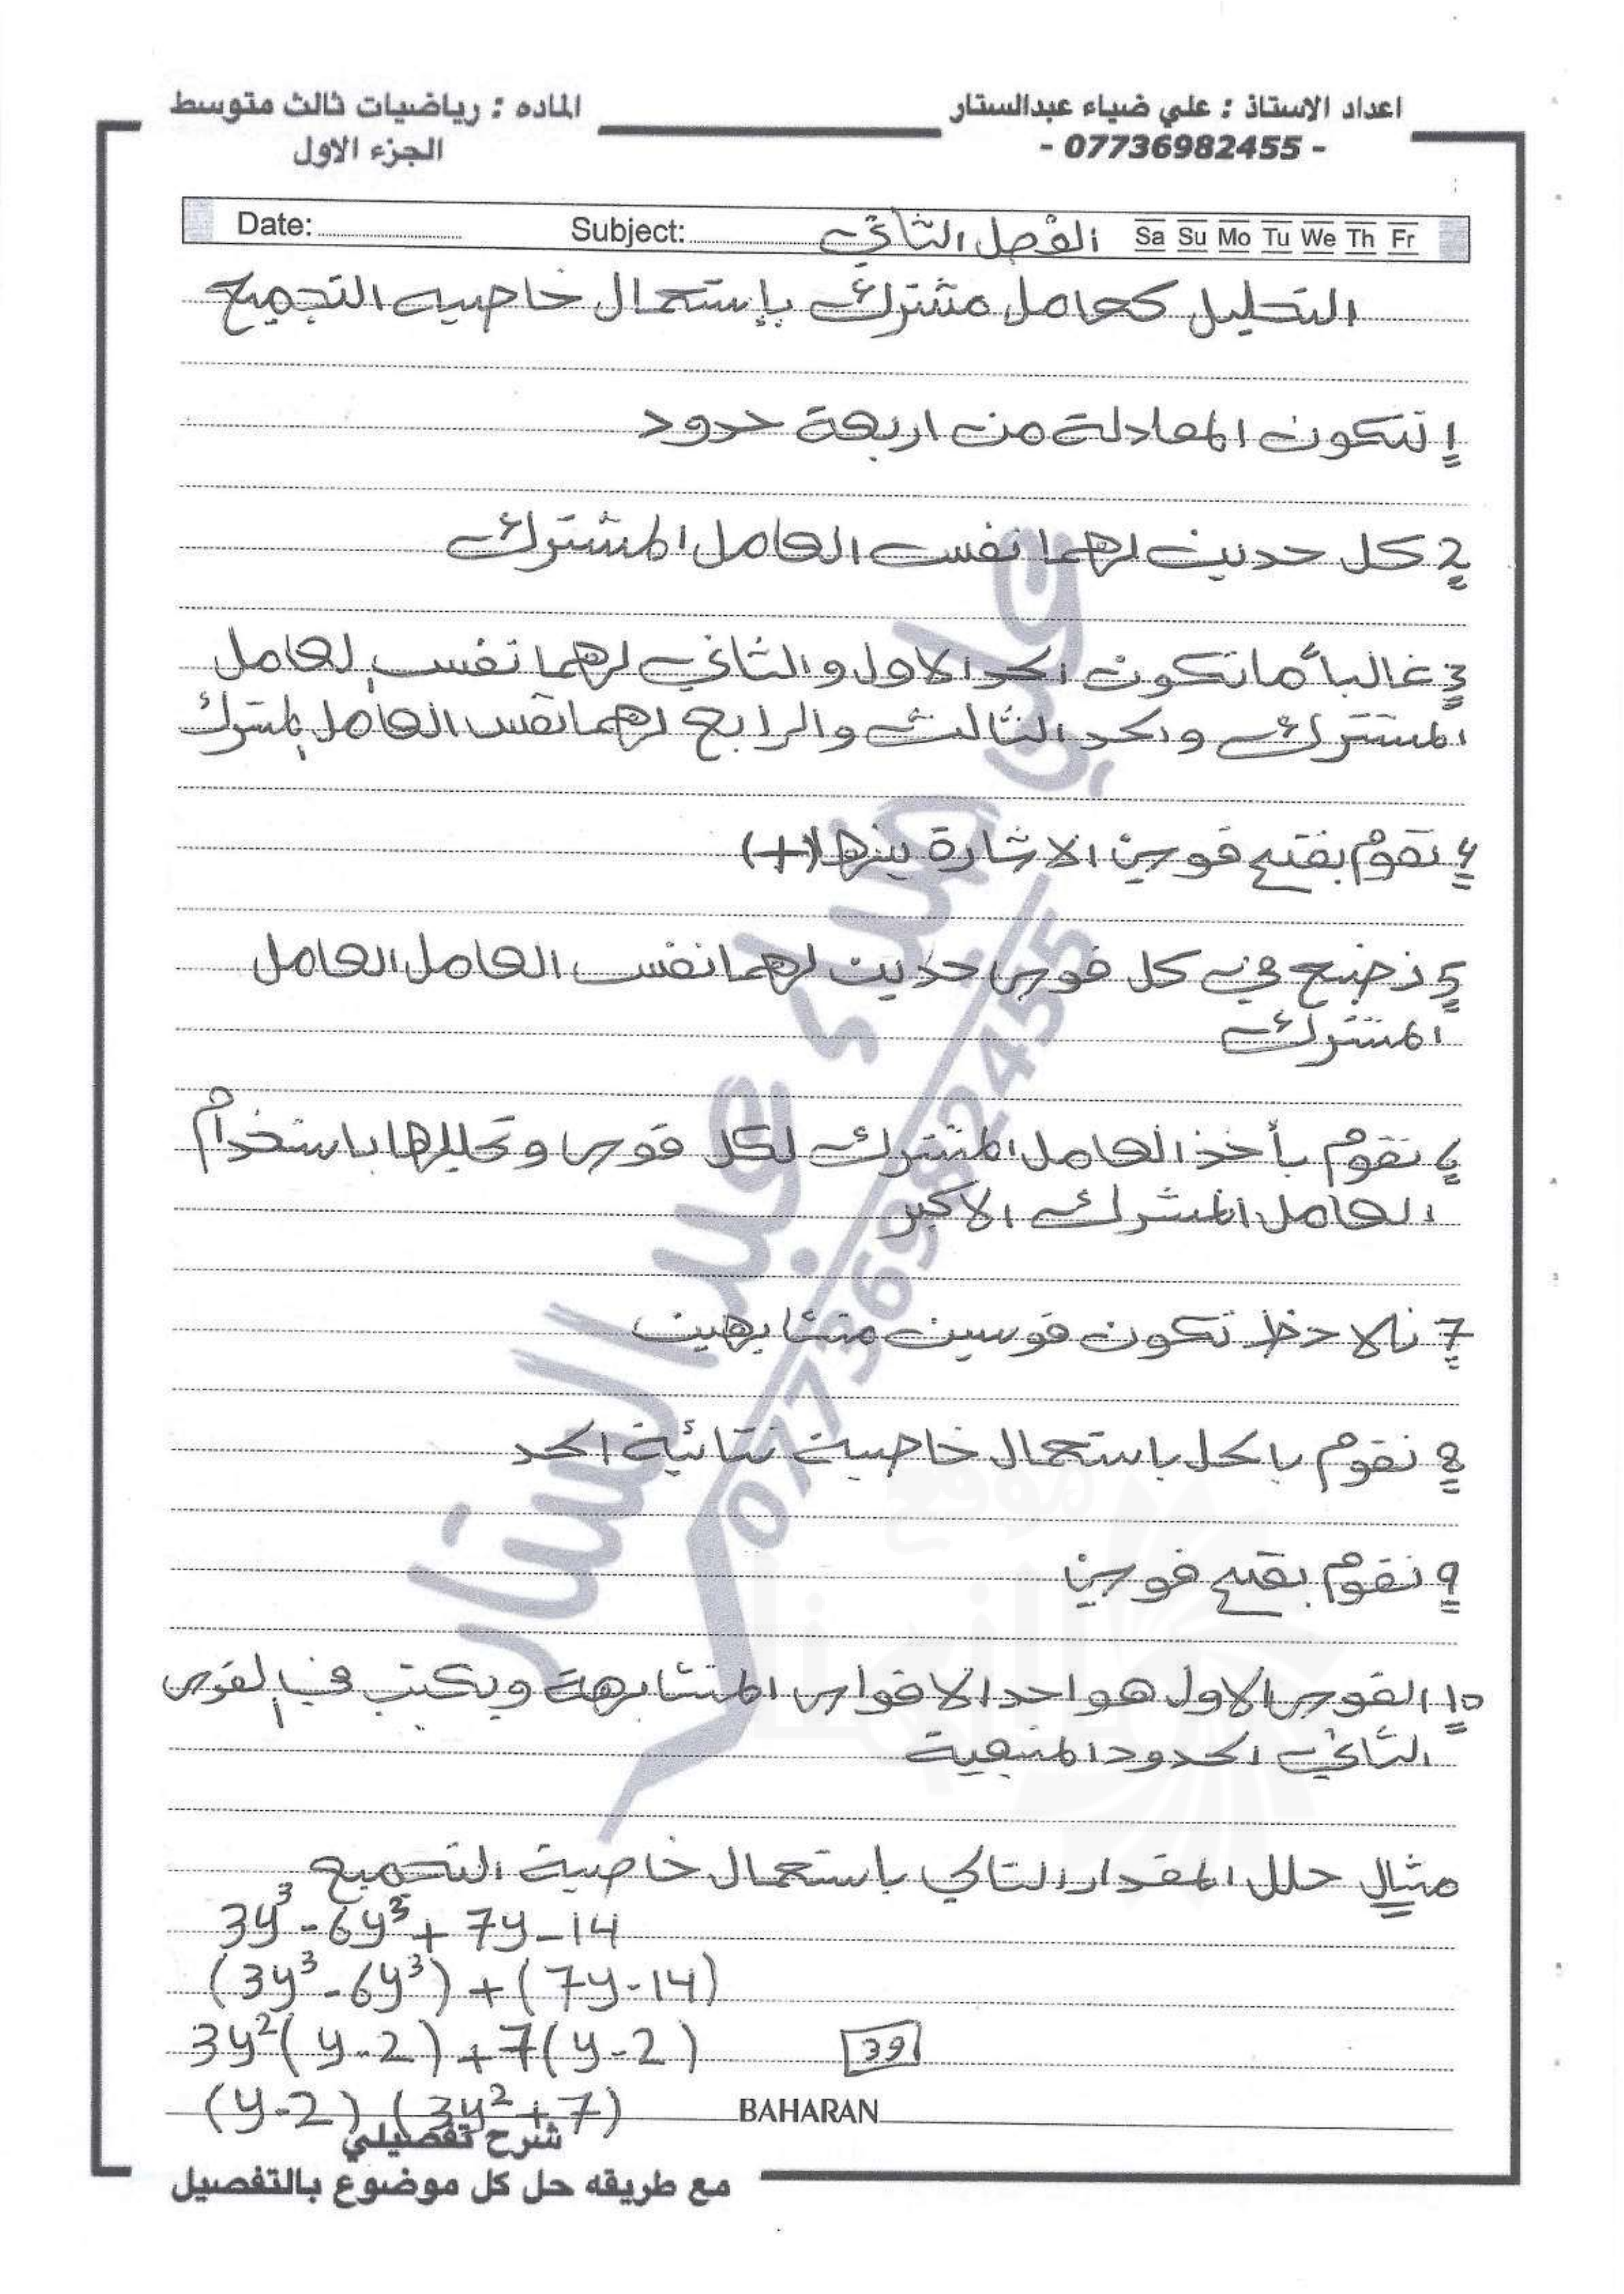 اعداد الاستاذ : علي ضياء عبدالستار
الماده : رياضيات ثالث متوسط
- 07736982455 -
الجزء الاول
Date: Subject: الفصل الثاني Sa Su Mo Tu We Th Fr
التحليل كعامل مشترك بإستعمال خاصيه التجميع
1 تتكون المعادلة من اربعة حدود
2 كل حدين لهما نفس العامل المشترك
3 غالباً ماتكون الحد الاول والثاني لهما نفس العامل
المشترك والحد الثالث والرابع لهما نفس العامل المشترك
4 نقوم بفتح قوسين الاشارة بينها (+)
5 نضع في كل قوس حدين لهما نفس العامل العامل
المشترك
6 نقوم بأخذ العامل المشترك لكل قوس وتحليلها باستخدام
العامل المشترك الاكبر
7 نلاحظ تكون قوسين متشابهين
8 نقوم بالحل باستعمال خاصية ثنائية الحد
9 نقوم بفتح قوسين
10 القوس الاول هو احد الاقواس المتشابهة ويكتب في القوس
الثاني الحدود المتبقية
مثال حلل المقدار التالي باستعمال خاصية التجميع
3y³ - 6y³ + 7y - 14
(3y³ - 6y³) + (7y - 14)
3y²(y - 2) + 7(y - 2)
39
(y - 2) (3y² + 7)
BAHARAN
شرح تفصيلي
مع طريقه حل كل موضوع بالتفصيل
علي ضياء عبدالستار
07736982455
موقع